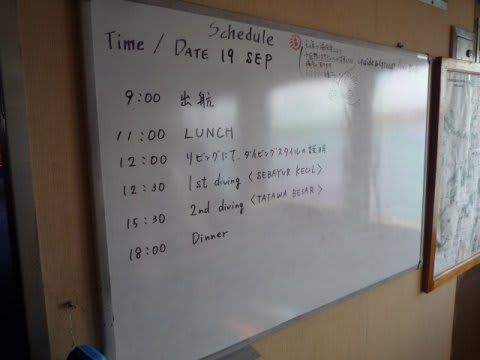 Schedule
Time / DATE 19 SEP
9:00 出航
11:00 LUNCH
12:00 リビングにて、ダイビングスタイルの説明
12:30 1st diving <SEBAYUR KECIL>
15:30 2nd diving <TATAWA BESAR>
18:00 Dinner